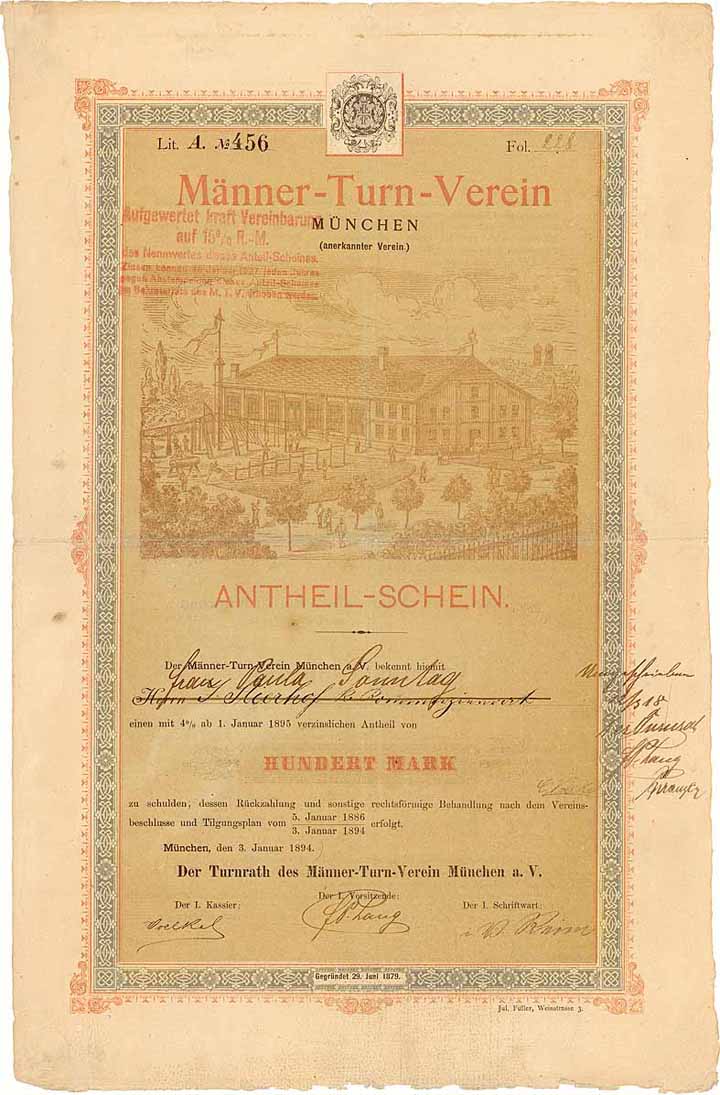 Lit. A. № 456
Fol. 228
Männer-Turn-Verein
MÜNCHEN
(anerkannter Verein.)
Aufgewertet kraft Vereinbarung
auf 15% R.-M.
des Nennwertes dieses Anteil-Scheines.
Zinsen können ab Januar 1927 jeden Jahres
gegen Abstempelung dieses Anteil-Scheines
im Sekretariate des M. T. V. erhoben werden.
ANTHEIL-SCHEIN.
Der Männer-Turn-Verein München a. V. bekennt hiemit
Frau Paula Sonntag
Herrn
einen mit 4% ab 1. Januar 1895 verzinslichen Antheil von
HUNDERT MARK
zu schulden, dessen Rückzahlung und sonstige rechtsförmige Behandlung nach dem Vereins-
beschlusse und Tilgungsplan vom 5. Januar 1886
3. Januar 1894 erfolgt.
München, den 3. Januar 1894.
Der Turnrath des Männer-Turn-Verein München a. V.
Der I. Kassier:
Der I. Vorsitzende:
Der I. Schriftwart:
Lang
Umgeschrieben
Lang
Gegründet 29. Juni 1879.
Jul. Füller, Weinstrasse 3.